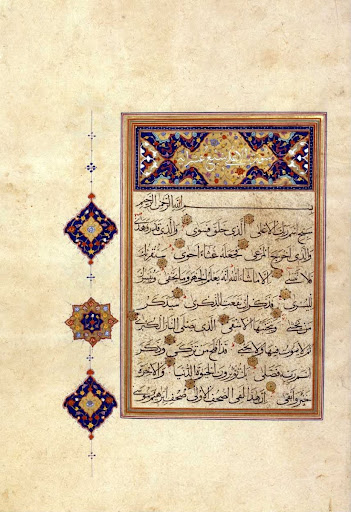 بسم الله الرحمن الرحيم
سبح اسم ربك الاعلى الذي خلق فسوى والذي قدر فهدى
والذي اخرج المرعى فجعله غثاء احوى سنقرئك
فلا تنسى الا ما شاء الله انه يعلم الجهر وما يخفى ونيسرك
لليسرى فذكر ان نفعت الذكرى سيذكر
من يخشى ويتجنبها الاشقى الذي يصلى النار الكبرى
ثم لا يموت فيها ولا يحيى قد افلح من تزكى وذكر
اسم ربه فصلى بل تؤثرون الحيوة الدنيا والاخرة
خير وابقى ان هذا لفي الصحف الاولى صحف ابرهيم وموسى